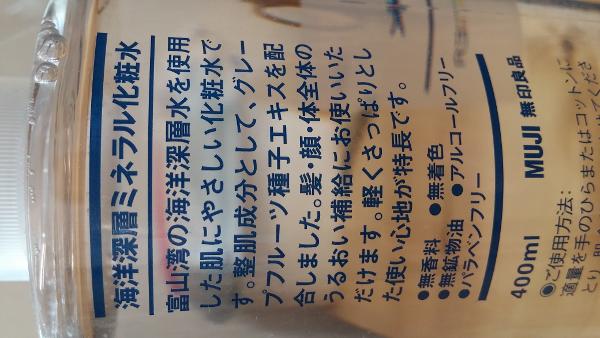 海洋深層ミネラル化粧水
富山湾の海洋深層水を使用
した肌にやさしい化粧水で
す。整肌成分として、グレー
プフルーツ種子エキスを配
合しました。髪・顔・体全体の
うるおい補給にお使いいた
だけます。軽くさっぱりとし
た使い心地が特長です。
●無香料 ●無着色
●無鉱物油 ●アルコールフリー
●パラベンフリー
400ml MUJI 無印良品
●ご使用方法:
適量を手のひらまたはコットンに
とり